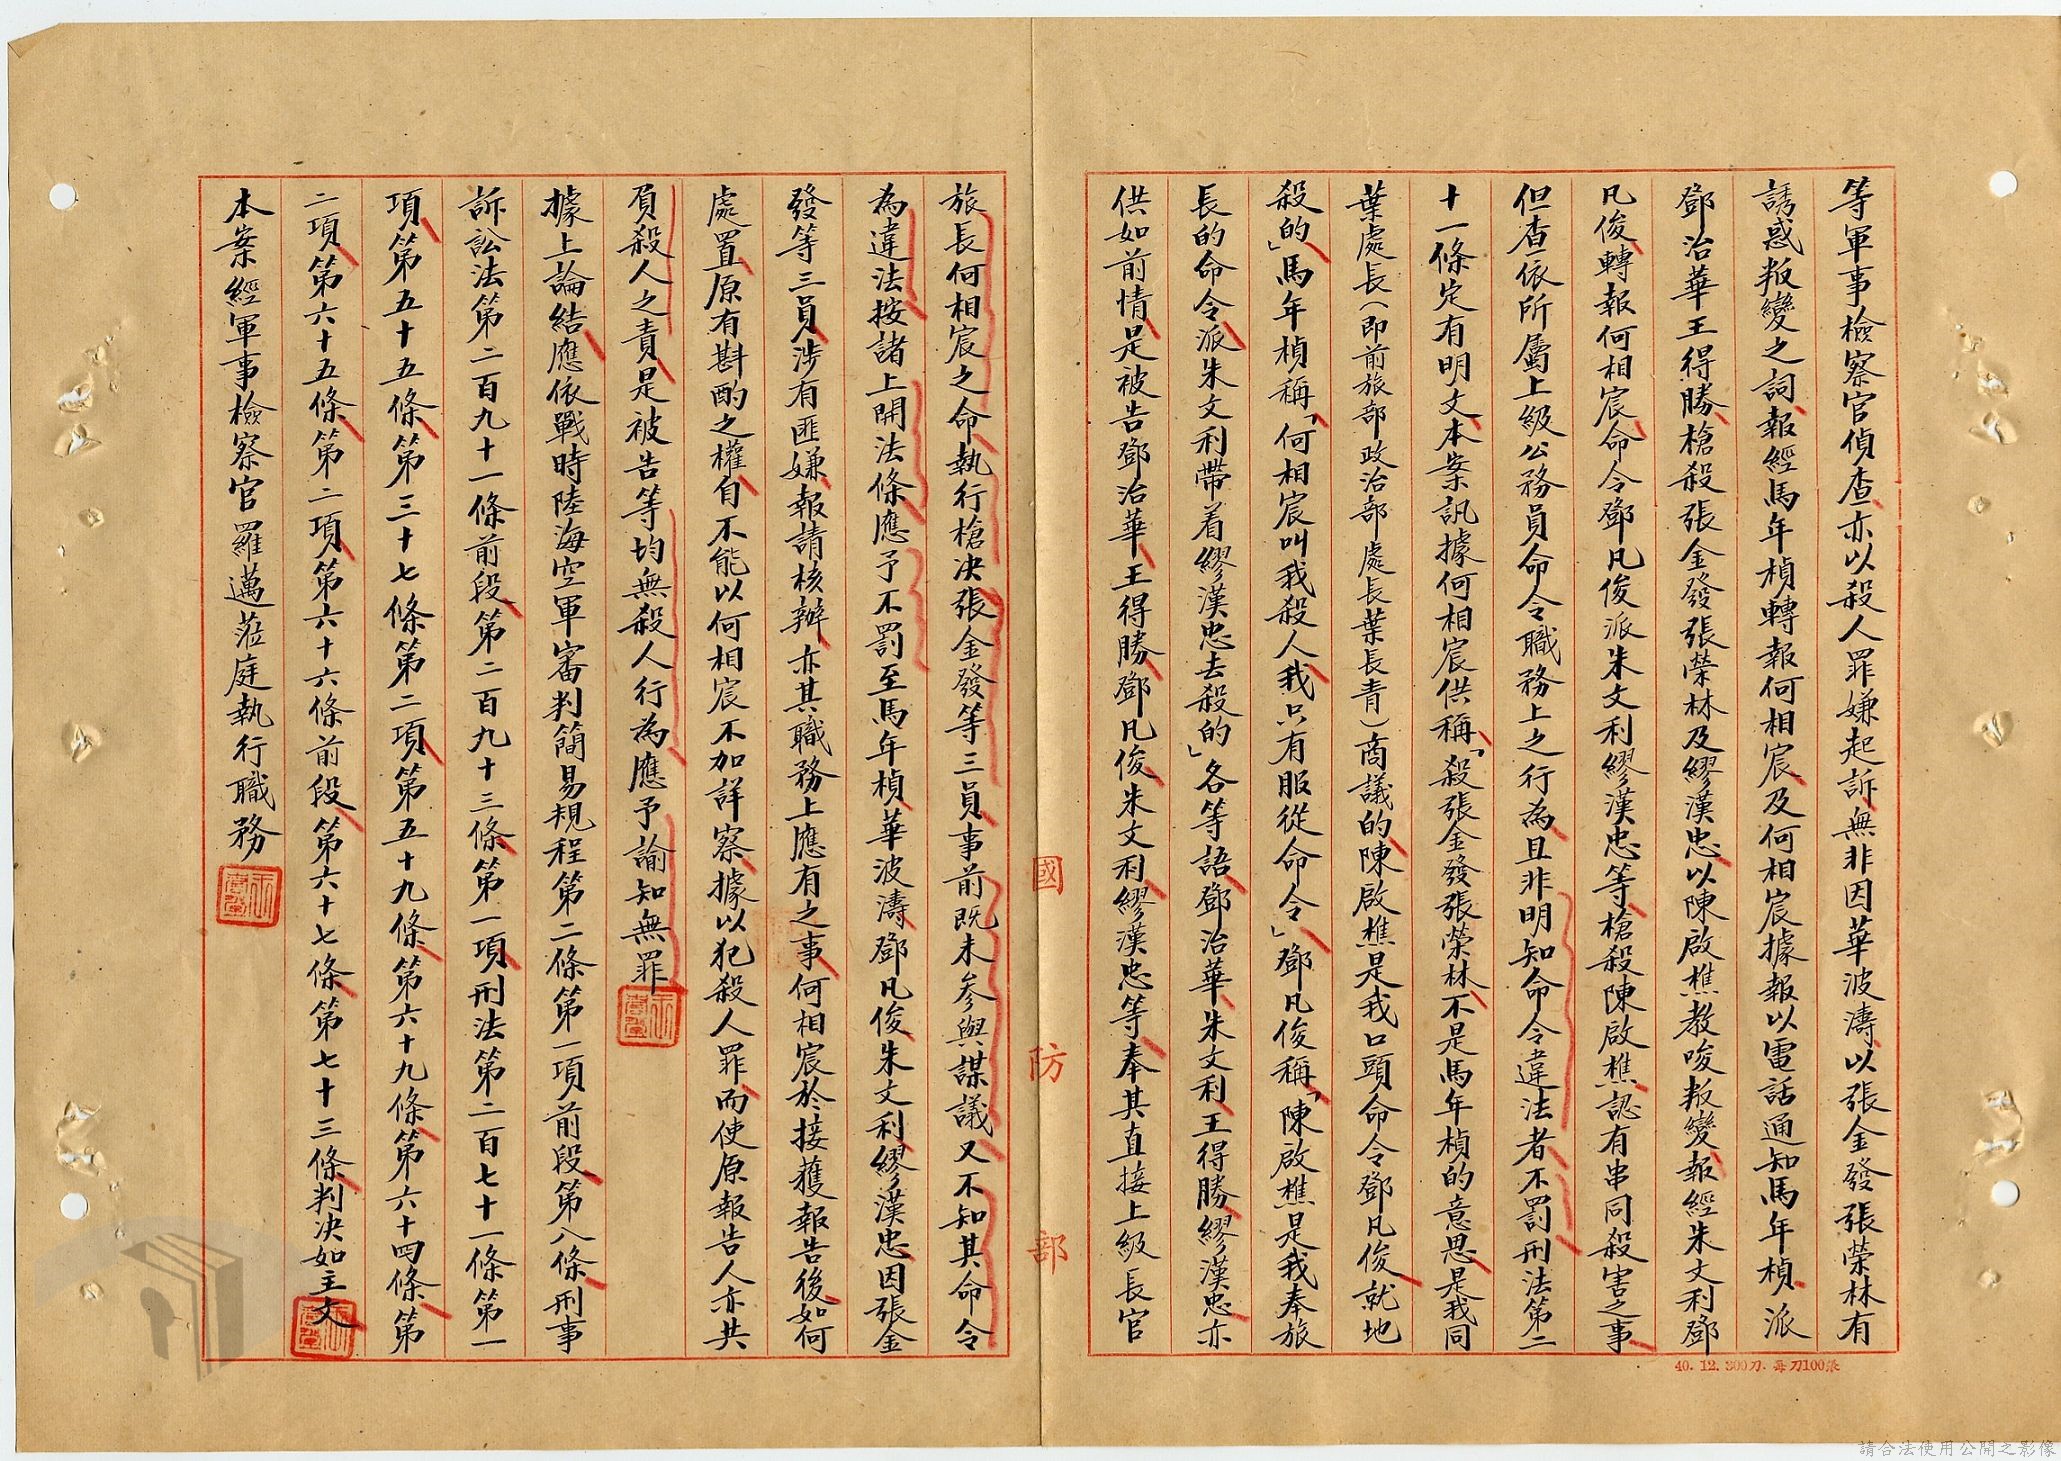 等軍事檢察官偵查亦以殺人罪嫌起訴無非因華波濤以張金發張榮林有
誘惑叛變之詞報經馬年楨轉報何相宸及何相宸據報以電話通知馬年楨派
鄧治華王得勝槍殺張金發張榮林及繆漢忠以陳啟樵教唆叛變報經朱文利鄧
凡俊轉報何相宸命令鄧凡俊派朱文利繆漢忠等槍殺陳啟樵認有串同殺害之事
但查依所屬上級公務員命令職務上之行為且非明知命令違法者不罰刑法第二
十一條定有明文本案訊據何相宸供稱「殺張金發張榮林不是馬年楨的意思是我同
葉處長（即前旅部政治部處長葉長青）商議的陳啟樵是我口頭命令鄧凡俊就地
殺的」馬年楨稱「何相宸叫我殺人我只有服從命令」鄧凡俊稱「陳啟樵是我奉旅
長的命令派朱文利帶着繆漢忠去殺的」各等語鄧治華朱文利王得勝繆漢忠亦
供如前情是被告鄧治華王得勝鄧凡俊朱文利繆漢忠等奉其直接上級長官
旅長何相宸之命執行槍決張金發等三員事前既未參與謀議又不知其命令
為違法按諸上開法條應予不罰至馬年楨華波濤鄧凡俊朱文利繆漢忠因張金
發等三員涉有匪嫌報請核辦亦其職務上應有之事何相宸於接獲報告後如何
處置原有斟酌之權自不能以何相宸不加詳察據以犯殺人罪而使原報告人亦共
負殺人之責是被告等均無殺人行為應予諭知無罪
據上論結應依戰時陸海空軍審判簡易規程第二條第一項前段第八條刑事
訴訟法第二百九十一條前段第二百九十三條第一項刑法第二百七十一條第一
項第五十五條第三十七條第二項第五十九條第六十九條第六十四條第
二項第六十五條第二項第六十六條前段第六十七條第七十三條判決如主文
本案經軍事檢察官羅邁蒞庭執行職務
國防部
40. 12. 300刀. 每刀100張
請合法使用公開之影像